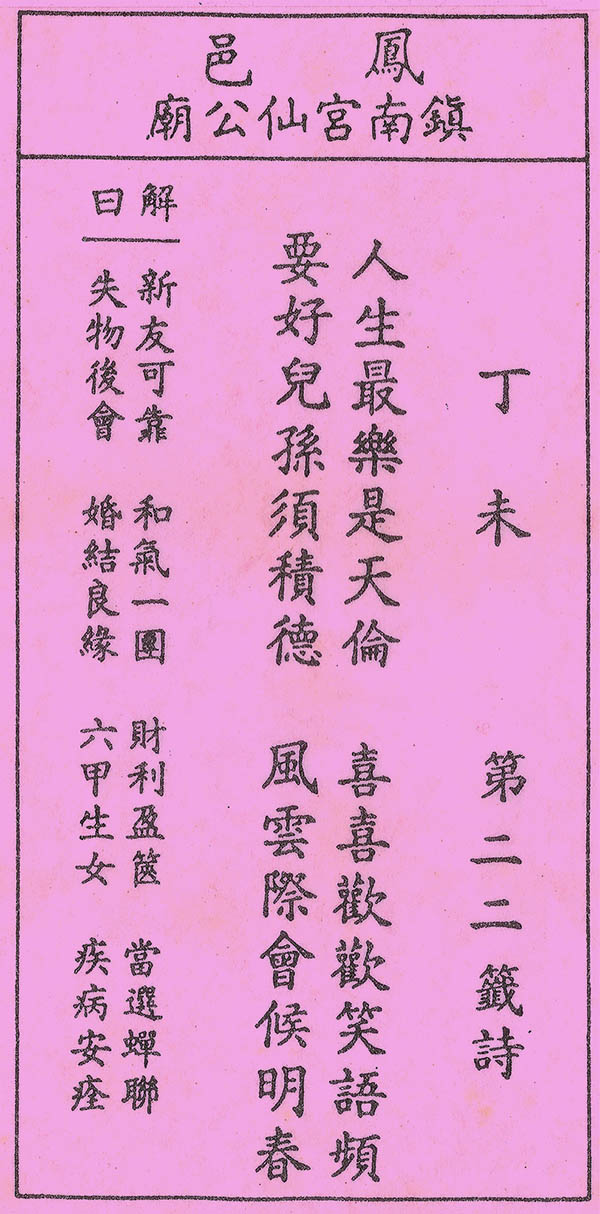 鳳邑
鎮南宮仙公廟
丁未 第二二籤詩
人生最樂是天倫 喜喜歡歡笑語頻
要好兒孫須積德 風雲際會候明春
解曰
新友可靠 和氣一團 財利盈篋 當選蟬聯
失物後會 婚結良緣 六甲生女 疾病安痊